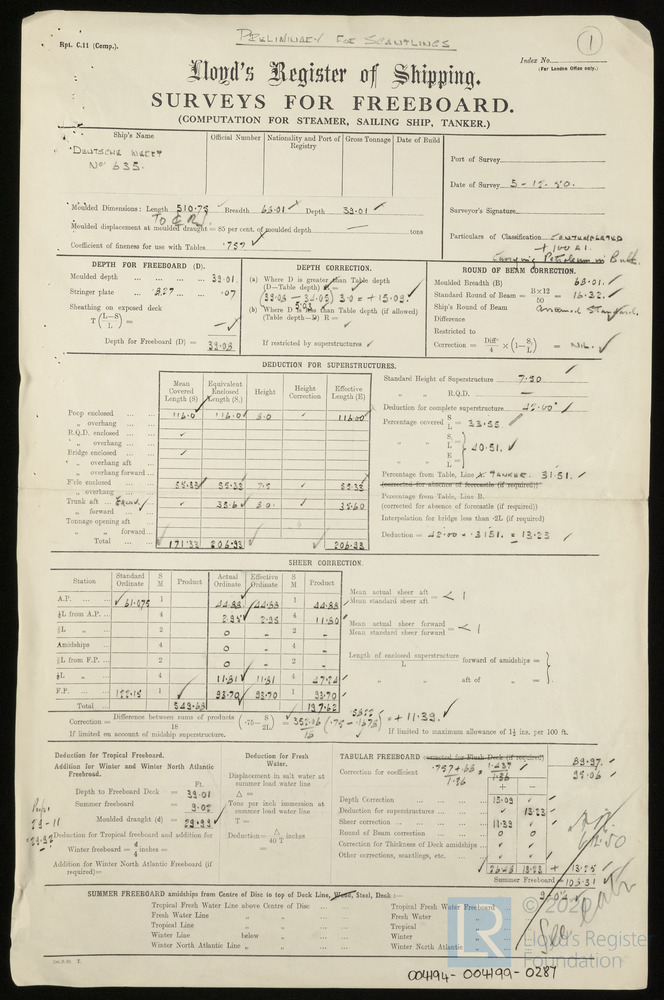 PRELIMINARY FOR SCANTLINGS
1
Rpt. C.11 (Comp.).
Index No.
(For London Office only.)
Lloyd's Register of Shipping.
SURVEYS FOR FREEBOARD.
(COMPUTATION FOR STEAMER, SAILING SHIP, TANKER.)
Ship's Name
Official Number
Nationality and Port of Registry
Gross Tonnage
Date of Build
DEUTSCHE WERFT
No 635.
Port of Survey
Date of Survey 5-12-50.
Surveyor's Signature
Particulars of Classification CONTEMPLATED
+100A1.
Carrying Petroleum in Bulk.
Moulded Dimensions: Length 510.75 Breadth 63.01 Depth 39.01
Moulded displacement at moulded draught = 85 per cent. of moulded depth — tons
Coefficient of fineness for use with Tables .757
DEPTH FOR FREEBOARD (D).
Moulded depth ... 39.01
Stringer plate ... .07
Sheathing on exposed deck
T(L-S/L) = —
Depth for Freeboard (D) = 39.08
DEPTH CORRECTION.
(a) Where D is greater than Table depth
(D—Table depth) R =
(39.08 - 34.05) 3.0 = +15.09.
5.03
(b) Where D is less than Table depth (if allowed)
(Table depth—D) R =
If restricted by superstructures
ROUND OF BEAM CORRECTION.
Moulded Breadth (B) 63.01.
Standard Round of Beam = B×12/50 = 15.32.
Ship's Round of Beam = Assumed Standard.
Difference
Restricted to
Correction = Diff/4 × (1-S/L) = NIL.
DEDUCTION FOR SUPERSTRUCTURES.
Mean Covered Length (S)
Equivalent Enclosed Length (S₁)
Height
Height Correction
Effective Length (E)
Poop enclosed ... 116.0 116.0 8.0 116.00
„ overhang ...
R.Q.D. enclosed ...
„ overhang ...
Bridge enclosed ...
„ overhang aft
„ overhang forward ...
F'cle enclosed ... 55.33 55.33 7.5 55.33
„ overhang ...
Trunk aft ... 35.6 8.0 35.60
„ forward ...
Tonnage opening aft
„ „ forward...
Total ... 171.33 206.93 206.93
Standard Height of Superstructure 7.50
„ „ R.Q.D. —
Deduction for complete superstructure 42.00"
Percentage covered S/L = 33.55
„ „ S₁/L = } 40.51.
„ „ E/L =
Percentage from Table, Line A. TANKER. 31.51.
(corrected for absence of forecastle (if required))
Percentage from Table, Line B.
(corrected for absence of forecastle (if required))
Interpolation for bridge less than ·2L (if required)
Deduction = 42.00 × .3151. = 13.23
SHEER CORRECTION.
Station
Standard Ordinate
S M
Product
Actual Ordinate
Effective Ordinate
S M
Product
A.P. ... 61.075 1 44.88 44.88 1 44.88
⅙L from A.P. ... 4 2.95 2.95 4 11.80
⅓L „ 2 0 - 2 -
Amidships ... 4 0 - 4 -
⅓L from F.P. ... 2 0 - 2 -
⅙L „ 4 11.81 11.81 4 47.24
F.P. ... 122.15 1 93.70 93.70 1 93.70
Total ... 549.68 197.62
Mean actual sheer aft / Mean standard sheer aft = < 1
Mean actual sheer forward / Mean standard sheer forward = < 1
Length of enclosed superstructure / L forward of amidships =
„ „ aft of „ =
Correction = Difference between sums of products / 18 (·75 - S/2L) = 352.06/18 (.75 - .1678) = +11.39.
If limited on account of midship superstructure.
If limited to maximum allowance of 1½ ins. per 100 ft.
Deduction for Tropical Freeboard.
Addition for Winter and Winter North Atlantic Freeboard.
Ft.
Depth to Freeboard Deck = 39.01
Summer freeboard = 9.02
Moulded draught (d) = 29.99
Deduction for Tropical freeboard and addition for
Winter freeboard = d/4 inches =
Addition for Winter North Atlantic Freeboard (if required)=
Deduction for Fresh Water.
Displacement in salt water at summer load water line
Δ =
Tons per inch immersion at summer load water line
T =
Deduction = Δ/40 T inches
=
TABULAR FREEBOARD corrected for Flush Deck (if required) 89.97.
Correction for coefficient .757+.68/1.36 = 1.437/1.36 95.06
+ -
Depth Correction ... 15.09
Deduction for superstructures ... 13.23
Sheer correction ... 11.39
Round of Beam correction ... 0 0
Correction for Thickness of Deck amidships ...
Other corrections, scantlings, etc. ...
26.48 13.23 + 13.25
Summer Freeboard = 108.31
See
SUMMER FREEBOARD amidships from Centre of Disc to top of Deck Line, Wood, Steel, Deck:—
Tropical Fresh Water Line above Centre of Disc ...
Fresh Water Line „ „
Tropical Line „ „
Winter Line below „
Winter North Atlantic Line „ „
Tropical Fresh Water Freeboard
Fresh Water „
Tropical „
Winter „
Winter North Atlantic „
LR
Lloyd's Register
Foundation
004194-004199-0287